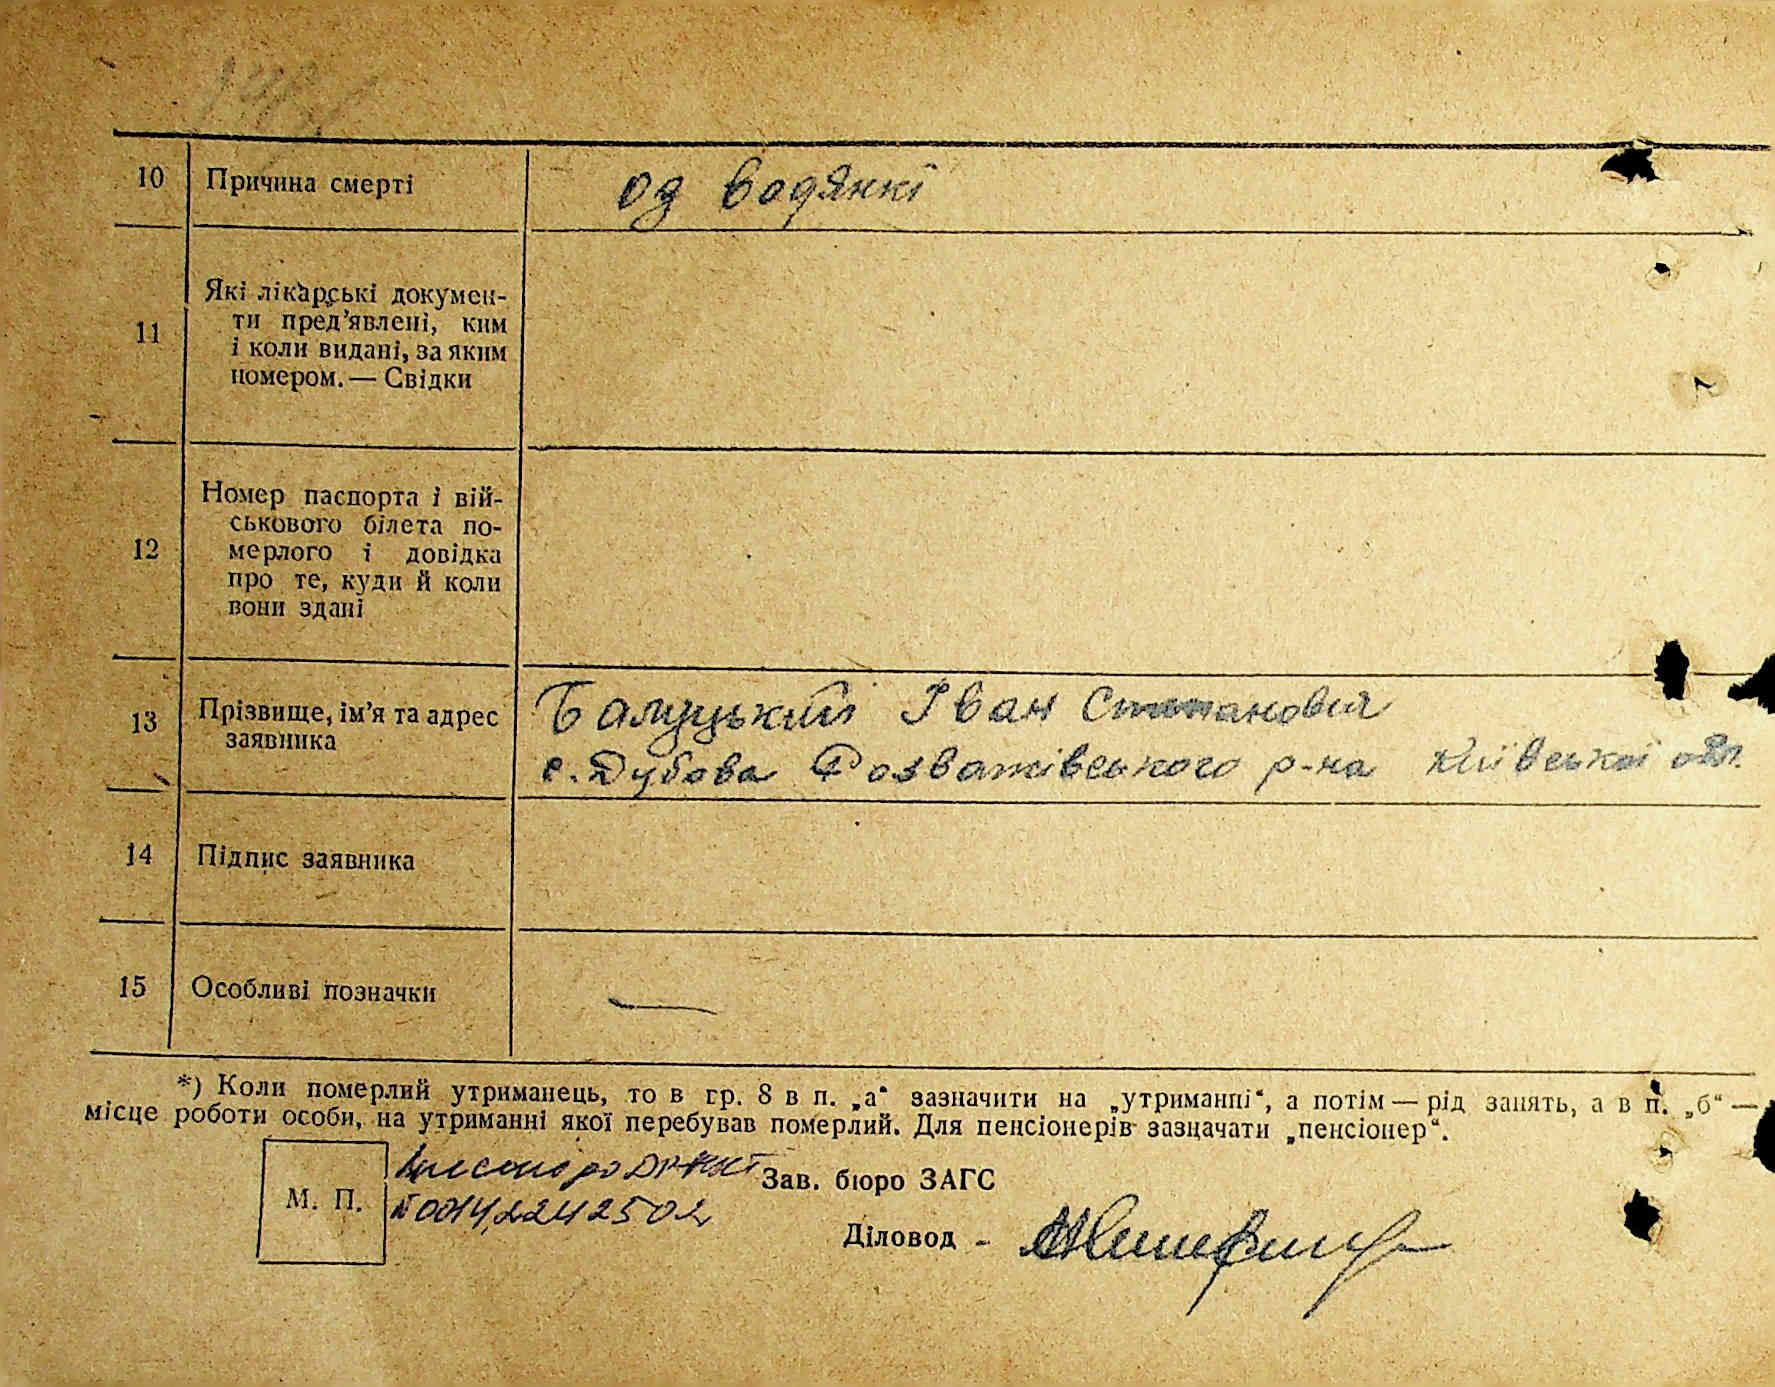 10 Причина смерті од водянкі
11 Які лікарські докумен-
ти пред’явлені, ким
і коли видані, за яким
номером. — Свідки
12 Номер паспорта і вій-
ськового білета по-
мерлого і довідка
про те, куди й коли
вони здані
13 Прізвище, ім’я та адрес
заявника
Іван Степановіч
с. Дубова Розважівського р-на Київської обл.
14 Підпис заявника
15 Особливі позначки —
*) Коли померлий утриманець, то в гр. 8 в п. „а“ зазначити на „утриманні“, а потім — рід занять, а в п. „б“ —
місце роботи особи, на утриманні якої перебував померлий. Для пенсіонерів зазначати „пенсіонер“.
М. П.
Зав. бюро ЗАГС
Діловод -